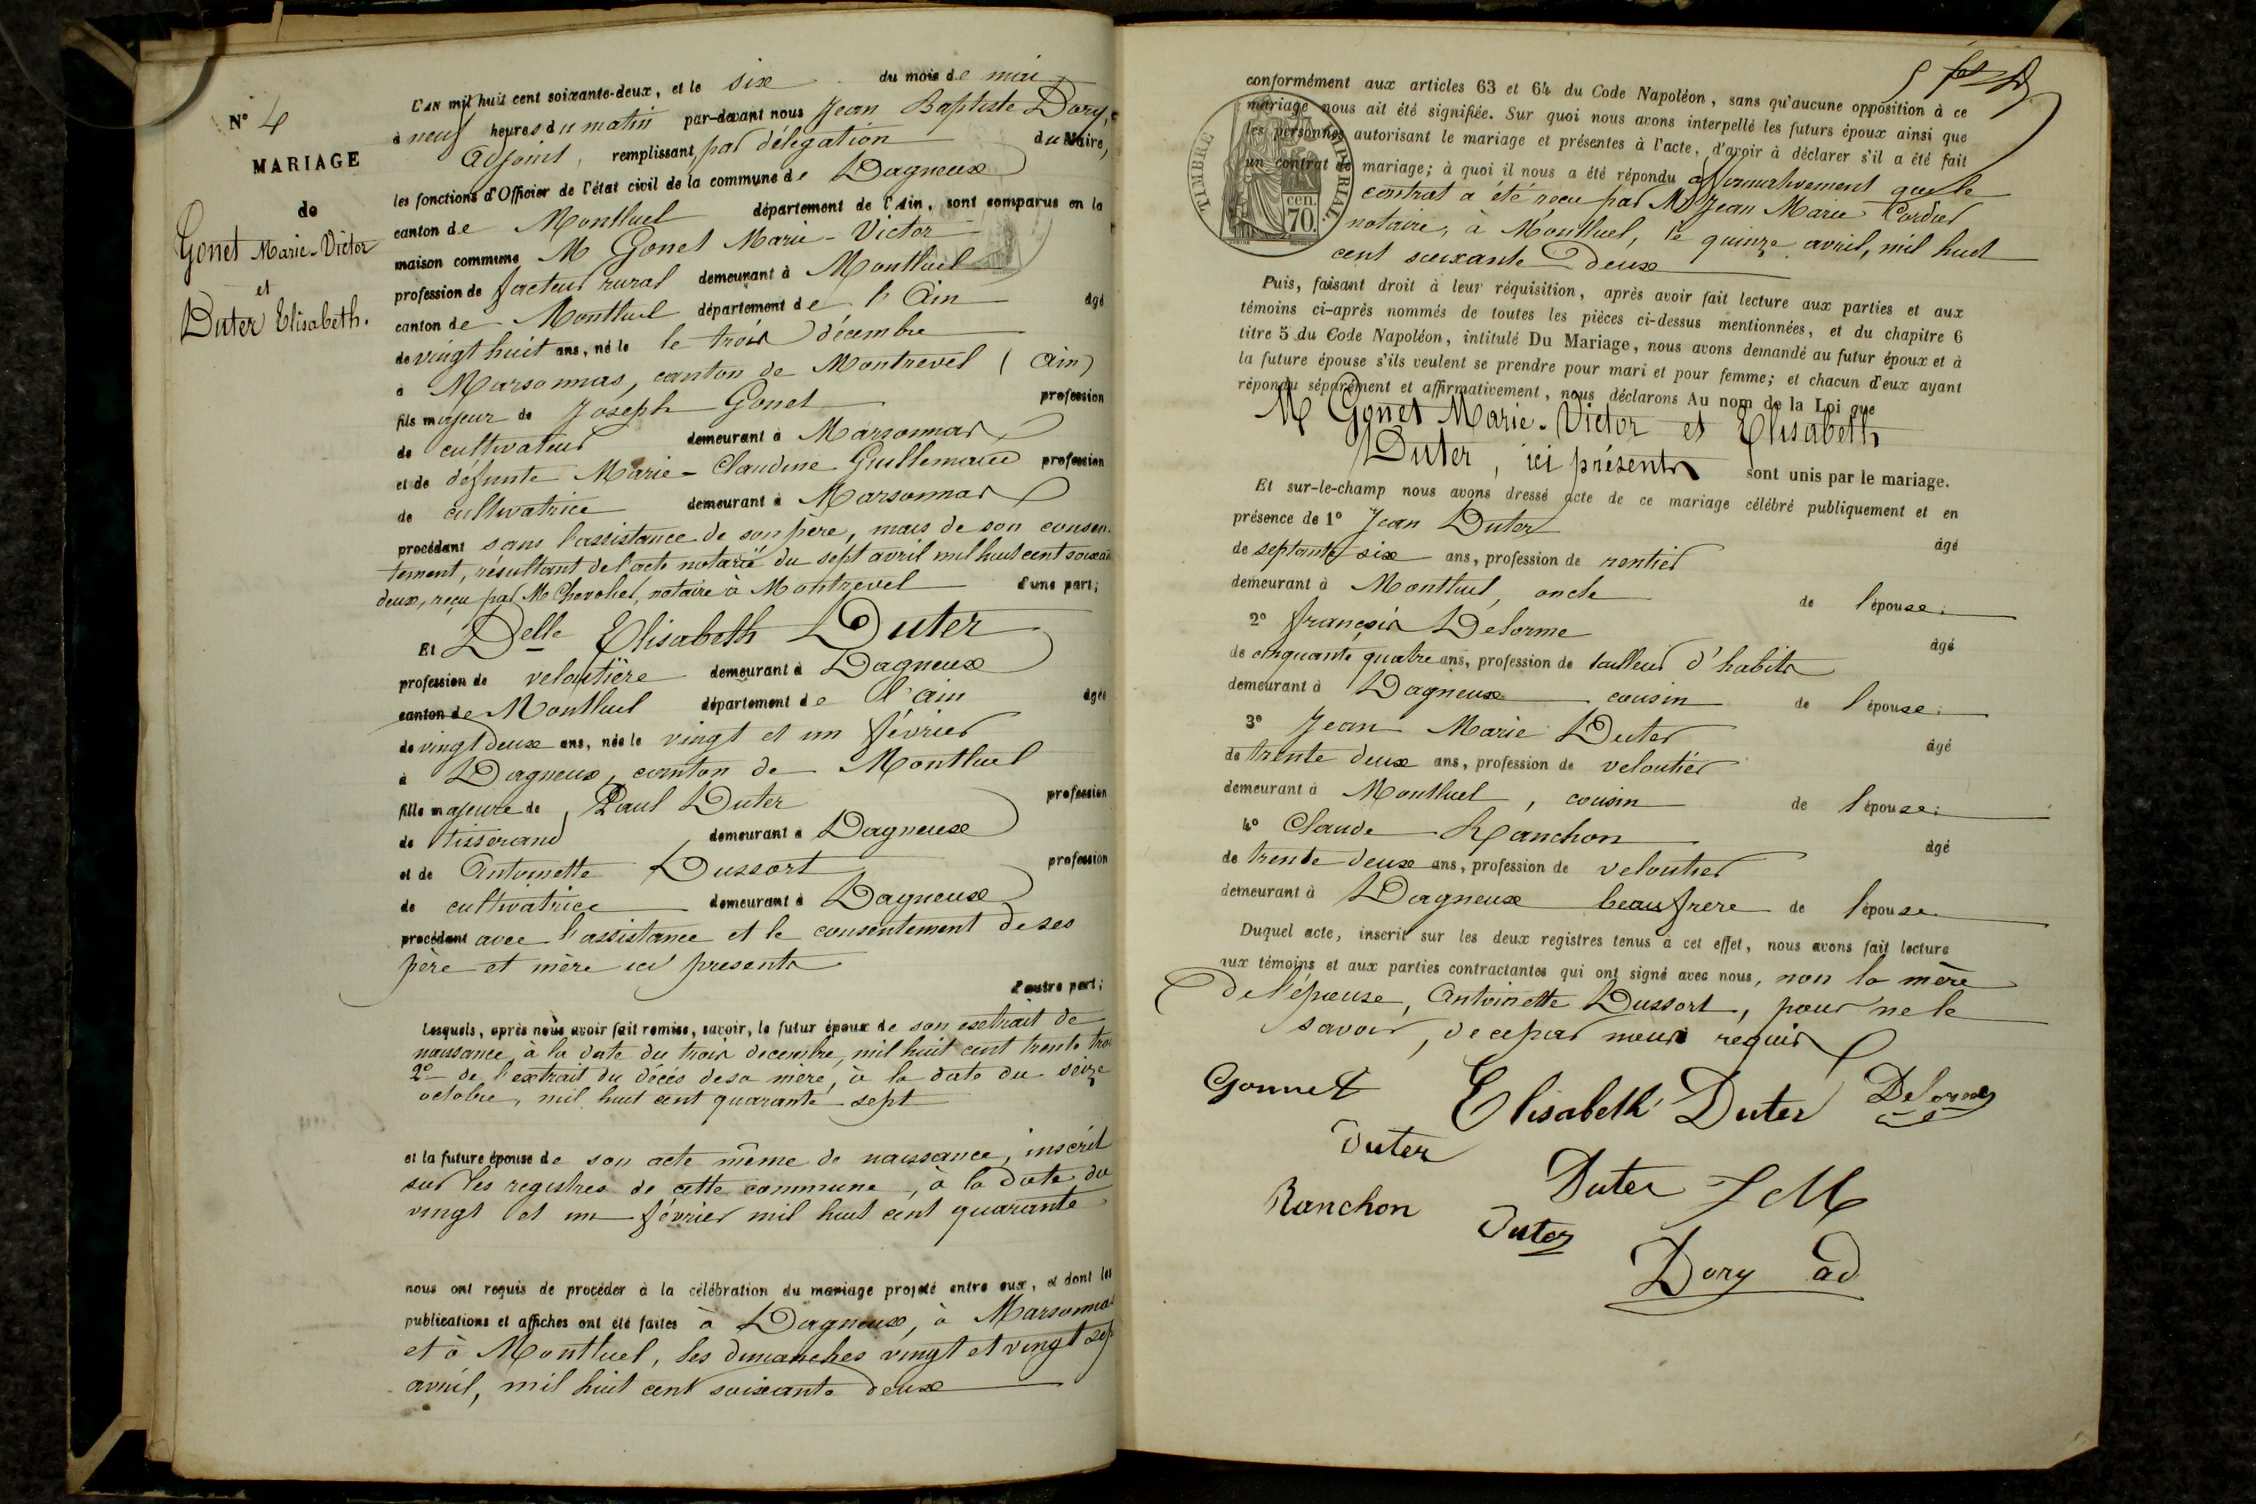 N° 4
MARIAGE
de
Gonet Marie-Victor
et
Duter Elisabeth.
L'AN mil huit cent soixante-deux, et le six du mois de mai
à neuf heures du matin par-devant nous Jean Baptiste Dory,
adjoint, remplissant, par délégation du Maire,
les fonctions d'Officier de l'état civil de la commune de Dagneux
canton de Montluel département de l'Ain, sont comparus en la
maison commune M Gonet Marie-Victor
profession de facteur rural demeurant à Montluel
canton de Montluel département de l'Ain âgé
de vingt huit ans, né le le trois décembre
à Marsonnas, canton de Montrevel (Ain)
fils majeur de Joseph Gonet profession
de cultivateur demeurant à Marsonnas
et de défunte Marie-Claudine Guillemaud profession
de cultivatrice demeurant à Marsonnas
procédant sans l'assistance de son père, mais de son consen-
tement, résultant de l'acte notarié du sept avril mil huit cent soixante
deux, reçu par Me Chevolier, notaire à Montrevel d'une part;
Et Delle Elisabeth Duter
profession de veloutière demeurant à Dagneux
canton de Montluel département de l'Ain âgée
de vingt deux ans, née le vingt et un février
à Dagneux, canton de Montluel
fille majeure de Paul Duter profession
de tisserand demeurant à Dagneux
et de Antoinette Dussort profession
de cultivatrice demeurant à Dagneux
procédant avec l'assistance et le consentement de ses
père et mère ici présents
d'autre part;
Lesquels, après nous avoir fait remise, savoir, le futur époux de son extrait de
naissance, à la date du trois decembre, mil huit cent trente trois
2° de l'extrait du décés de sa mère, à la date du seize
octobre, mil huit cent quarante sept
et la future épouse de son acte même de naissance, inscrit
sur les registres de cette commune, à la date du
vingt et un février mil huit cent quarante
nous ont requis de procéder à la célébration du mariage projeté entre eux, et dont les
publications et affiches ont été faites à Dagneux, à Marsonnas
et à Montluel, les dimanches vingt et vingt sept
avril, mil huit cent soixante deux
conformément aux articles 63 et 64 du Code Napoléon, sans qu'aucune opposition à ce
mariage nous ait été signifiée. Sur quoi nous avons interpellé les futurs époux ainsi que
les personnes autorisant le mariage et présentes à l'acte, d'avoir à déclarer s'il a été fait
un contrat de mariage; à quoi il nous a été répondu affirmativement que le
contrat a été reçu par Me Jean Marie Cordier
notaire, à Montluel, le quinze avril, mil huit
cent soixante Deux
TIMBRE IMPÉRIAL.
cen. 70.
Puis, faisant droit à leur réquisition, après avoir fait lecture aux parties et aux
témoins ci-après nommés de toutes les pièces ci-dessus mentionnées, et du chapitre 6
titre 5 du Code Napoléon, intitulé Du Mariage, nous avons demandé au futur époux et à
la future épouse s'ils veulent se prendre pour mari et pour femme; et chacun d'eux ayant
répondu séparément et affirmativement, nous déclarons Au nom de la Loi que
M Gonet Marie-Victor et Elisabeth
Duter, ici présents sont unis par le mariage.
Et sur-le-champ nous avons dressé acte de ce mariage célébré publiquement et en
présence de 1° Jean Duter âgé
de septante six ans, profession de rentier
demeurant à Montluel, oncle de l'épouse;
2° françois Delorme âgé
de cinquante quatre ans, profession de tailleur d'habits
demeurant à Dagneux cousin de l'épouse;
3° Jean Marie Duter âgé
de trente deux ans, profession de veloutier
demeurant à Montluel, cousin de l'épouse;
4° Claude Ranchon âgé
de trente deux ans, profession de veloutier
demeurant à Dagneux beaufrere de l'épouse
Duquel acte, inscrit sur les deux registres tenus à cet effet, nous avons fait lecture
aux témoins et aux parties contractantes qui ont signé avec nous, non la mère
De l'épouse, Antoinette Dussort, pour ne le
savoir, de ce par nous requis
Gonnet Elisabeth Duter Delorme
Duter
Duter J M
Ranchon
Duter
Dory ad